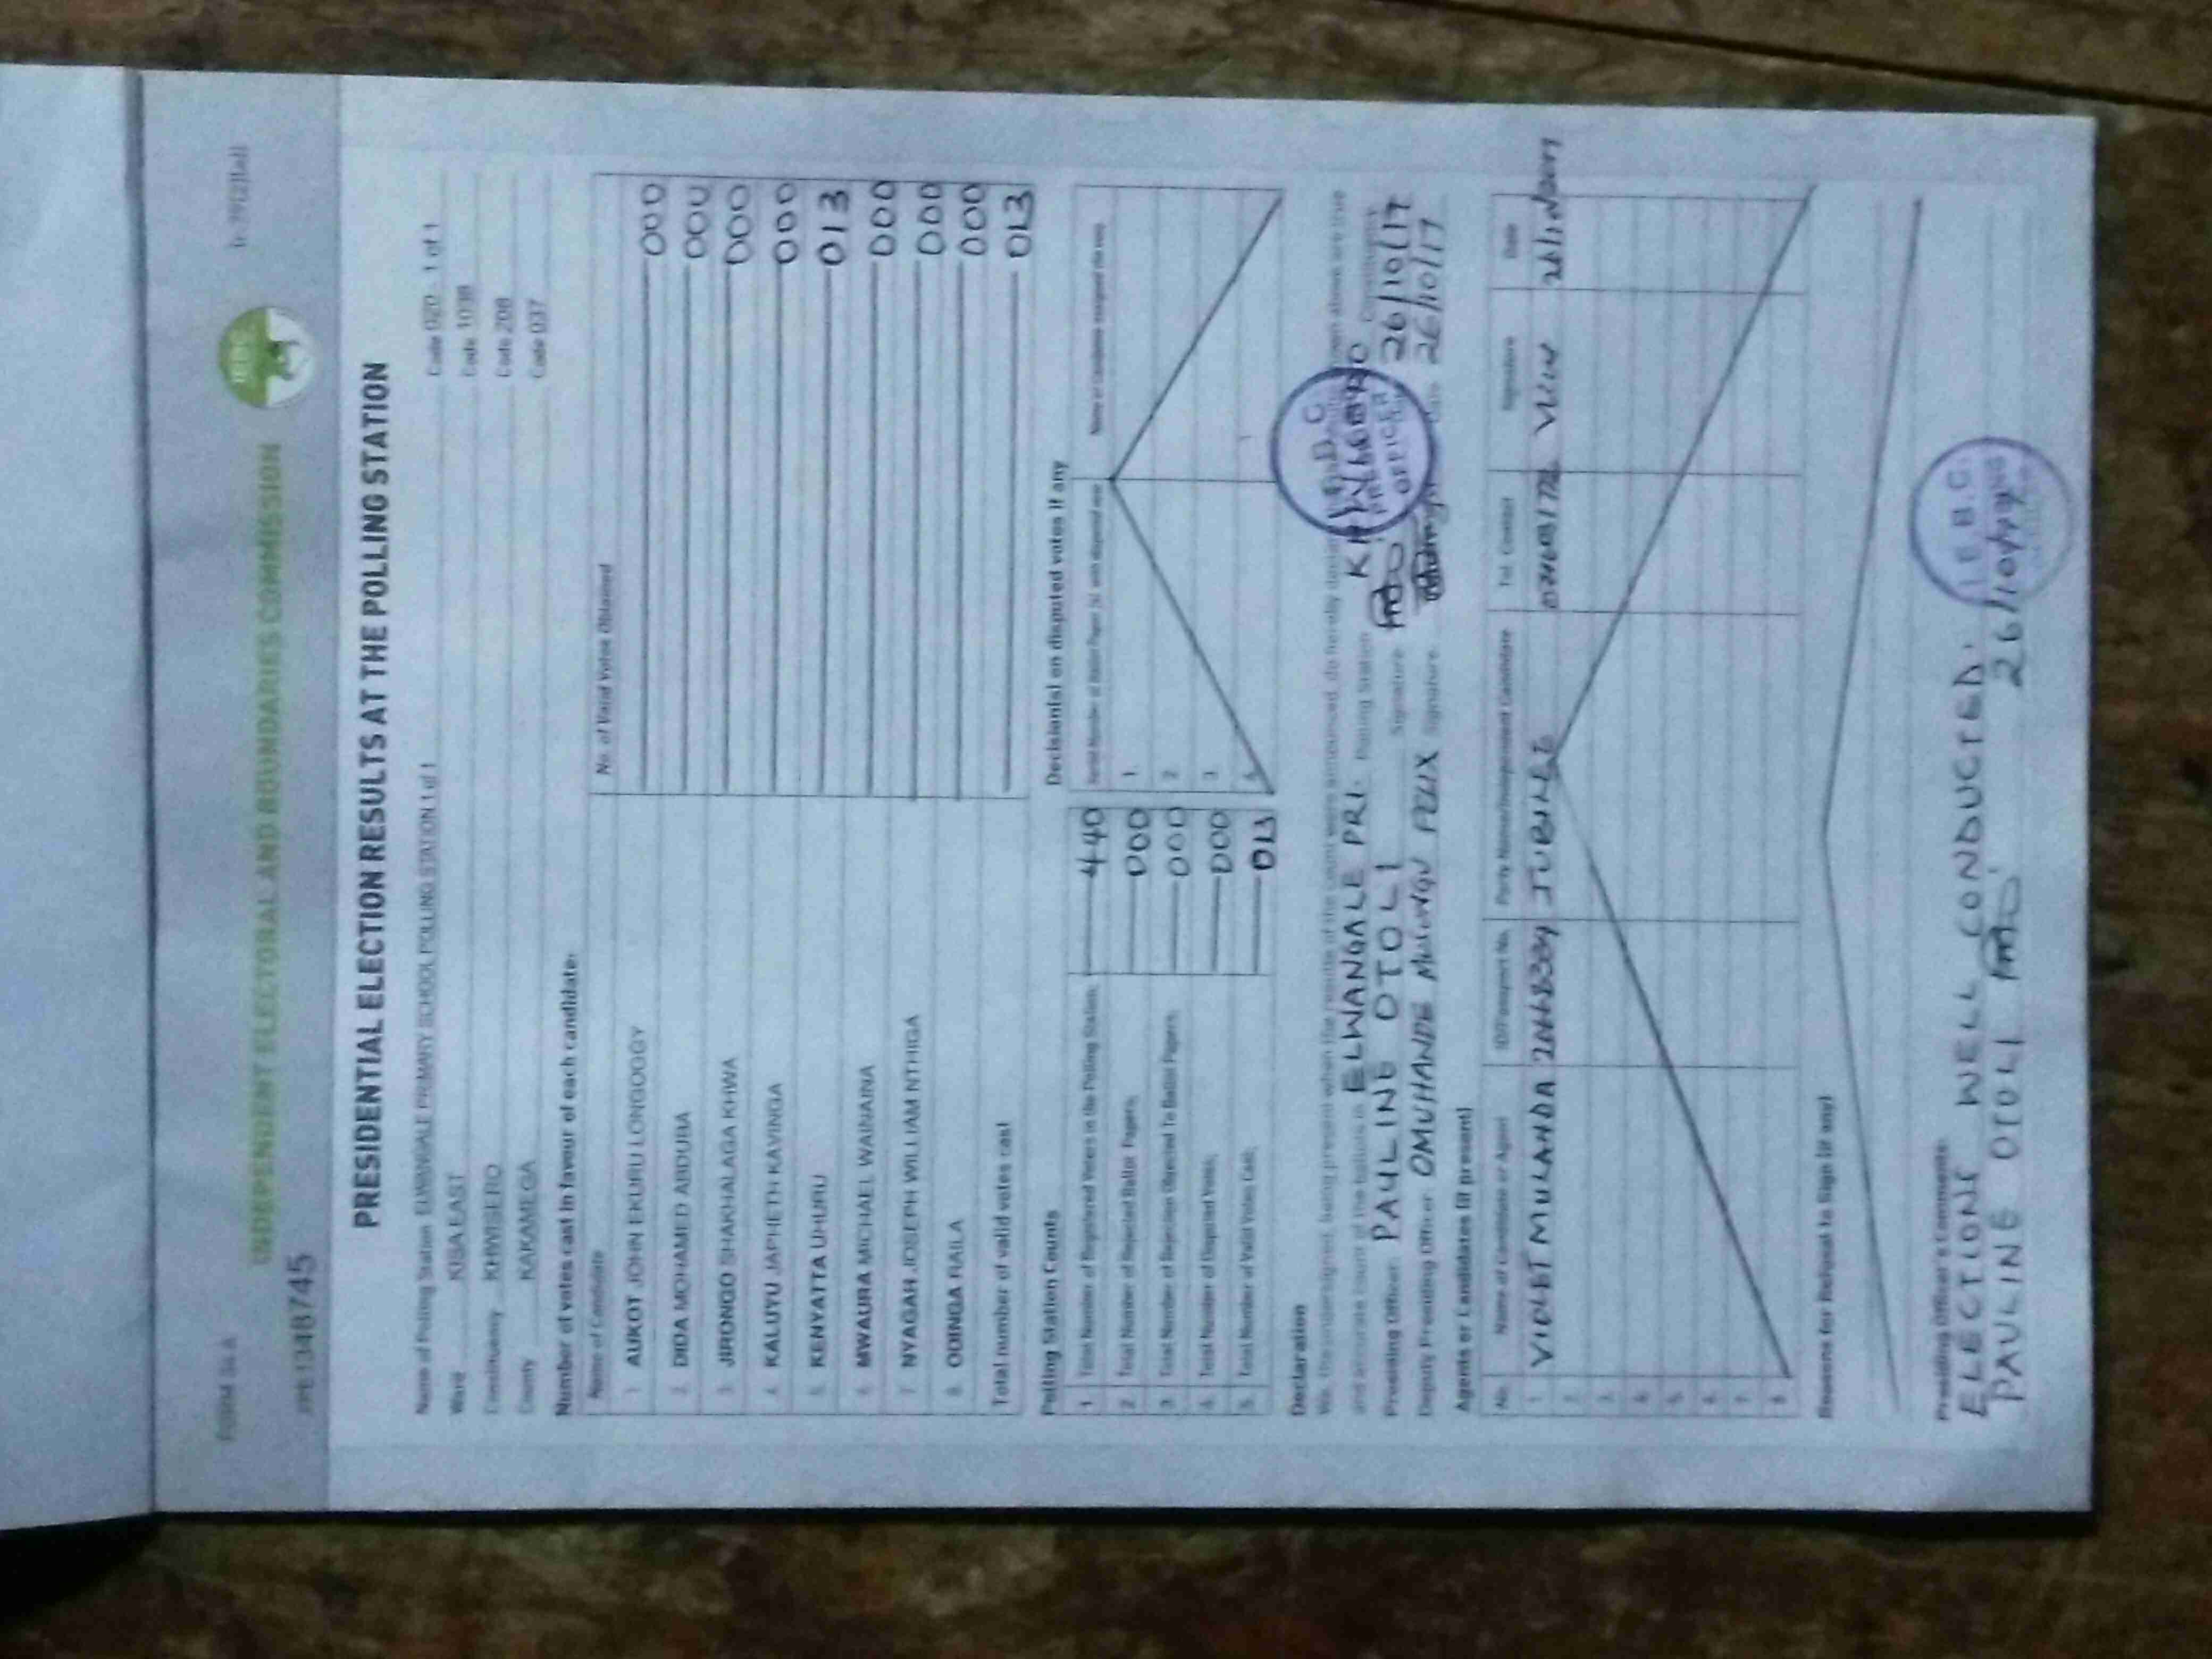 FORM 34 A
INDEPENDENT ELECTORAL AND BOUNDARIES COMMISSION
PRESIDENTIAL ELECTION RESULTS AT THE POLLING STATION
Name of Polling Station ELWANGALE PRIMARY SCHOOL POLLING STATION 1 of 1 Code 020 - 1 of 1
Ward KISA EAST Code 1038
Constituency KHWISERO Code 208
County KAKAMEGA Code 037
Number of votes cast in favour of each candidate:
Name of Candidate No. of Valid votes Obtained
1 AUKOT JOHN EKURU LONGOGGY 000
2. DIDA MOHAMED ABDUBA 000
3. JIRONGO SHAKHALAGA KHWA 000
4. KALUYU JAPHETH KAVINGA 000
5. KENYATTA UHURU 013
6. MWAURA MICHAEL WAINAINA 000
7. NYAGAH JOSEPH WILLIAM NTHIGA 000
8. ODINGA RAILA 000
Total number of valid votes cast 013
Polling Station Counts
1 Total Number of Registered Voters in the Polling Station; 440
2 Total Number of Rejected Ballot Papers; 000
3 Total Number of Rejection Objected To Ballot Papers; 000
4. Total Number of Disputed Votes; 000
5. Total Number of Valid Votes Cast; 013
Decision(s) on disputed votes if any
1.
2
3
4
Declaration
We, the undersigned, being present when the results of the count were announced, do hereby declare above are true
and accurate count of the ballots in ELWANGALE PRI. Polling Station Constituency
Presiding Officer PAULINE OTOLI Signature 26/10/17
Deputy Presiding Officer OMUHANDE FELIX Signature 26/10/17
Agents or Candidates (if present)
No. Name of Candidate or Agent ID/Passport No. Party Name/Independent Candidate Tel. Contact Signature Date
1 VIOLET MULANDA JUBILEE
2
3
4
5
6
7
8
Reasons for Refusal to Sign (if any)
Presiding Officer's Comments
ELECTIONS WELL CONDUCTED.
PAULINE OTOLI 26/10/
I.E.B.C
I.E.B.C
PRESIDING
OFFICER